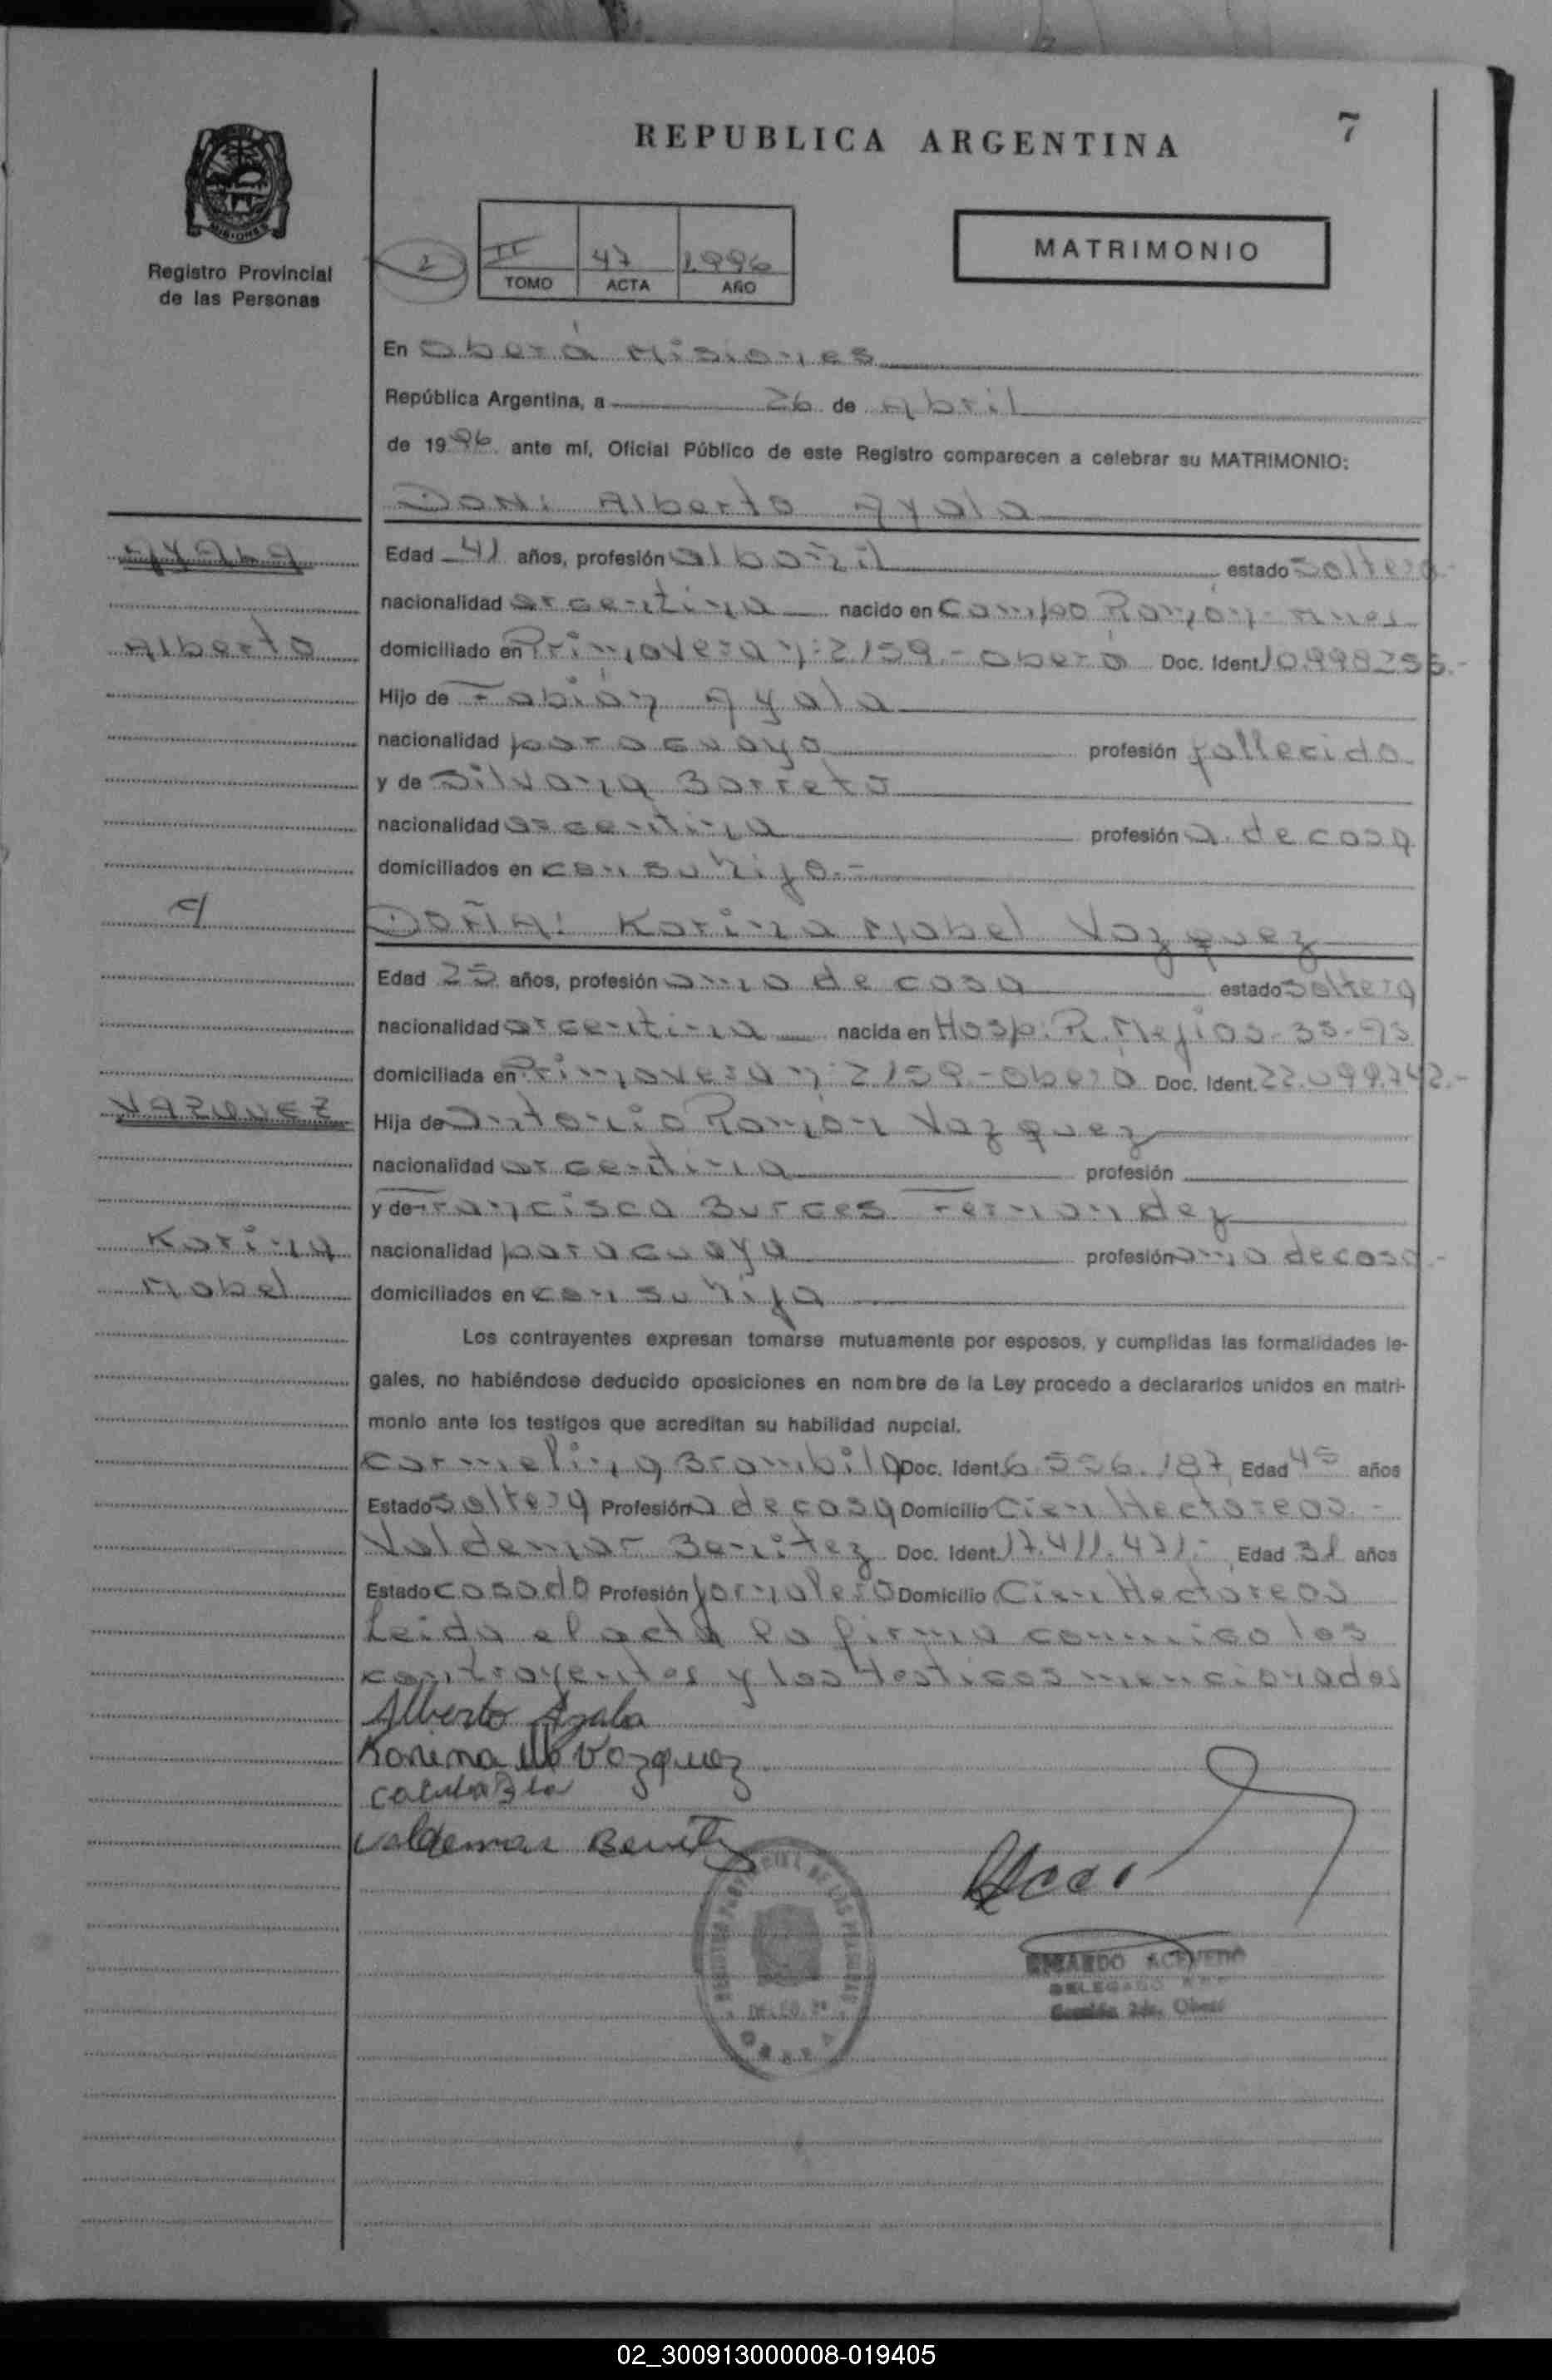 REPUBLICA ARGENTINA
7
MISIONES
Registro Provincial
de las Personas
2
II 47 1.996
TOMO ACTA AÑO
MATRIMONIO
En Oberá Misiones
República Argentina, a 26 de Abril
de 1996 ante mí, Oficial Público de este Registro comparecen a celebrar su MATRIMONIO:
DON: Alberto Ayala
AYALA
Edad 41 años, profesión albañil estado soltero.-
nacionalidad argentina nacido en Campo Ramón -
Alberto
domiciliado en Primavera n: 2159.- Oberá Doc. Ident. 10.998.255.-
Hijo de Fabián Ayala
nacionalidad paraguaya profesión fallecido
y de Silvana Barreto
nacionalidad argentina profesión a. de casa
domiciliados en con su hijo.-
y
DOÑA: Karina Mabel Vazquez
Edad 25 años, profesión ama de casa estado soltera
nacionalidad argentina nacida en Hosp. R. Mejías - 
domiciliada en Primavera n: 2159 - Oberá Doc. Ident. 22.099.742.-
VAZQUEZ
Hija de Antonio Ramón Vazquez
nacionalidad argentina profesión
y de Francisca Burges Fernandez
Karina
nacionalidad paraguaya profesión ama de casa.-
Mabel
domiciliados en con su hija
Los contrayentes expresan tomarse mutuamente por esposos, y cumplidas las formalidades le-
gales, no habiéndose deducido oposiciones en nombre de la Ley procedo a declararlos unidos en matri-
monio ante los testigos que acreditan su habilidad nupcial.
Carmelina Brambila Doc. Ident. 6.556.187 Edad 45 años
Estado soltera Profesión a de casa Domicilio Cien Hectareas.-
Valdemar Benitez Doc. Ident. 17.411.471.- Edad 31 años
Estado casado Profesión jornalero Domicilio Cien Hectareas
Leida el acta la firma conmigo los
contrayentes y los testigos mencionados
Alberto Ayala
Karina M Vazquez
Valdemar Benitez
REGISTRO PROVINCIAL DE LAS PERSONAS
DELEG. 2a
OBERA
ACEVEDO
DELEGADO
Sección 2da. Oberá
02_300913000008-019405